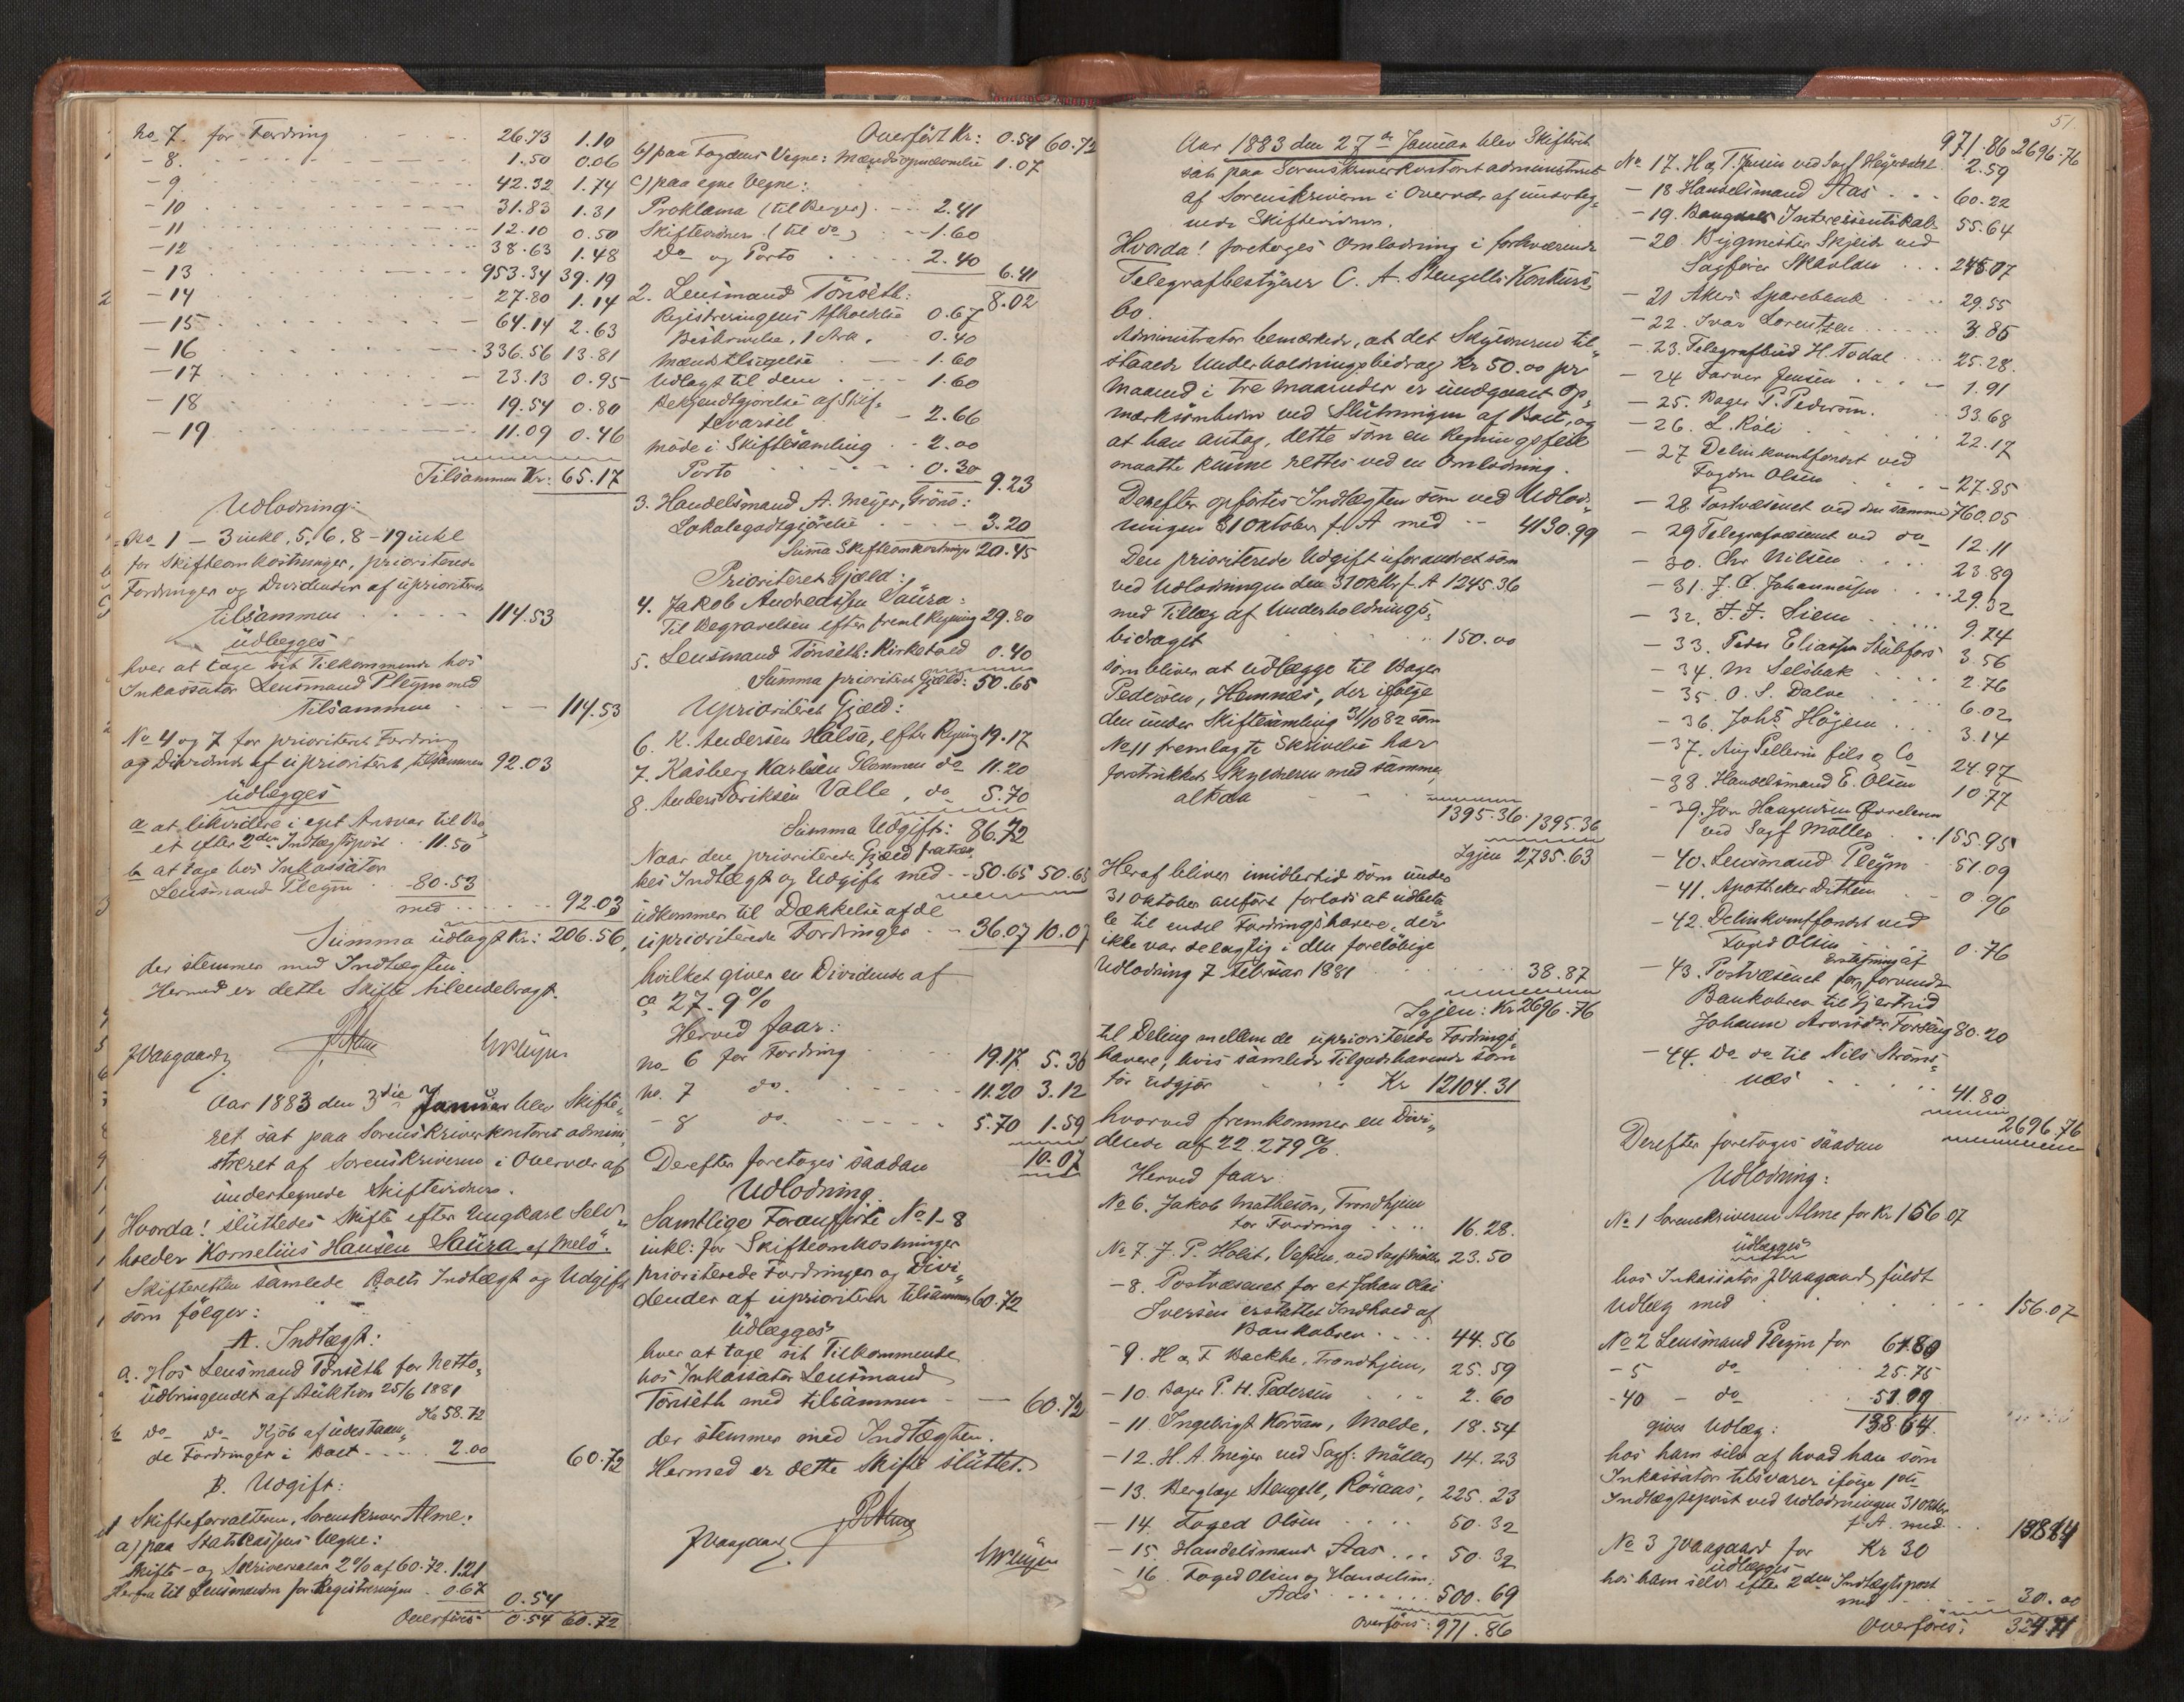 No 7. for Fordring 26.73 1.10
- 8. 1.50 0.06
- 9 42.32 1.74
- 10 31.83 1.31
- 11 12.10 0.50
- 12 38.63 1.48
- 13 953.34 39.19
- 14 27.80 1.14
- 15 64.14 2.63
- 16 336.56 13.81
- 17 23.13 0.95
- 18 19.54 0.80
- 19 11.09 0.46
Tilsammen Kr: 65.17
Udlodning:
No 1 - 3 inkl, 5, 6, 8 - 19 inkl
for Skifteomkostninger, prioriterede
Fordringer og Dividender af uprioriterede
tilsammen 114.53
udlægges
hver at tage sit Tilkommende hos
Inkassator Lensmand Pleym med
tilsammen 114.53
No 4 og 7 for prioriteret Fordring
og Dividende af uprioriteret, tilsammen 92.03
udlægges
a at likvidere i eget Ansvar til Bo-
et efter 2den Indtægtspost 11.50
b at tage hos Inkassator
Lensmand Pleym 80.53
med 92.03
Summa udlagt Kr: 206.56,
der stemmer med Indtægten.
Hermed er dette Skifte tilendebragt.
JVaagaard PAlme
Aar 1883 den 3die Januar blev Skifte-
ret sat paa Sorenskriverkontoret admini-
streret af Sorenskriveren i Overvær af
undertegnede Skiftevidner.
Hvorda! sluttedes Skifte efter Ungkarl Selv-
hoeder Kornelius Hansen Saura af Melø.
Skifteretten samlede Boets Indtægt og Udgift
som følger:
A. Indtægt:
a. Hos Lensmand Tønseth for Netto-
udbringendet af Auktion 25/6 1881
Kr 58.72
b Do Do Kjøb af udestaaen-
de Fordringer i Boet 2.00 60.72
B. Udgift:
1 Skifteforvalteren, Sorenskriver Alme:
a) paa Statskassens Vegne:
Skifte- og Skriversalær 2% af 60.72. 1.21
Herfra til Lensmanden for Registreringen 0.67 0.54
Overføres 0.54 60.72
Overført Kr: 0.54 60.72
b) paa Fogdens Vegne: Mændsopnævnelse 1.07
c) paa egne Vegne:
Proklama (til Berger) 2.41
Skiftevidner (til do) 1.60
Do og Porto 2.40 6.41
8.02
2. Lensmand Tønseth:
Registreringens Afholdelse 0.67
Beskrivelse, 1 Ark, 0.40
Mændstilsigelse 1.60
Udlagt til dem 1.60
Bekjendtgjørelse af Skif-
tevarsel 2.66
Møde i Skiftesamling 2.00
Porto 0.30 9.23
3. Handelsmand A. Meyer, Grønø:
Lokalegodtgjørelse 3.20
Summa Skifteomkostninger 20.45
Prioriteret Gjæld:
4. Jakob Andreassen Saura:
Til Begravelsen efter freml Regning 29.80
5. Lensmand Tønseth: Kirketold 0.40
Summa prioriteret Gjæld: 50.65
Uprioriteret Gjæld:
6. K. Andersen Halsa, efter Regning 19.17
7. Kasberg Karlsen Glommen do 11.20
8. Anders Eriksen Valle, do 5.70
Summa Udgift: 86.72
Naar den prioriterede Gjæld fratræk-
kes Indtægt og Udgift med 50.65 50.65
udkommer til Dækkelse af de
uprioriterede Fordringer 36.07 10.07
hvilket giver en Dividende af
ca 27.9%
Herved faar:
No 6 for Fordring 19.17 5.36
No. 7 do. 11.20 3.12
- 8 do. 5.70 1.59
10.07
Derefter foretoges saadan
Udlodning
Samtlige Foranførte No 1-8
inkl: for Skifteomkostninger
prioriterede Fordringer og Divi-
dender af uprioriterede tilsammen 60.72
udlægges
hver at tage sit Tilkommende
hos Inkassator Lensmand
Tønseth med tilsammen 60.72
der stemmer med Indtægten.
Hermed er dette Skifte sluttet.
PAlme
JVaagaard
51.
Aar 1883 den 27de Januar blev Skifteret
sat paa Sorenskriverkontoret administreret
af Sorenskriveren i Overvær af underteg-
nede Skiftevidner.
Hvorda! foretoges Omlodning i forhværende
Telegrafbestyrer C. A. Stengells Konkurs-
bo.
Administrator bemærkede, at det Skyldneren til-
staaede Underholdningsbidrag Kr 50.00 pr
Maaned i tre Maaneder er undgaaet Op-
mærksomheden ved Slutningen af Boet, og
at han antog, dette som en Regningsfeil
maatte kunne rettes ved en Omlodning.
Derefter opførtes Indtægten som ved Udlod-
ningen 31 Oktober f. A med 4130.99
Den prioriterede Udgift uforandret som
ved Udlodningen den 31 Oktbr f. A 1245.36
med Tillæg af Underholdnings-
bidraget 150.00
som bliver at udlægge til Bager
Pedersen, Hemnæs, der ifølge
den under Skiftesamling 31/10 82 som
No 11 fremlagte Skrivelse har
forstrukket Skyldneren med samme
altsaa 1395.36 1395.36
Igjen 2735.63
Heraf bliver imidlertid som under
31 Oktober anført forlods at udbeta-
le til endel Fordringshavere, der
ikke var delagtig i den foreløbige
Udlodning 7 Februar 1881 38.87
Igjen: Kr 2696.76
til Deling mellem de uprioriterede Fordrings-
havere, hvis samlede Tilgodehavende som
før udgjør Kr 12104.31
hvorved fremkommer en Divi-
dende af 22.279%.
Herved faar:
No 6. Jakob Matheson, Trondhjem
for Fordring 16.28.
No 7. J. P. Holst, Vefsen, ved Sagf Møller 23.50
- 8. Postvæsenet for et Johan Olai
Iversen erstattet Indhold af
Bankobrev 44.56
- 9. H & F Backke, Trondhjem, 25.59
- 10. Bager P. H. Pedersen 2.60
- 11. Ingebrigt Korsan, Molde, 18.54
- 12. H. A. Meyer ved Sagf: Møller 14.23
- 13. Berglæge Stengell, Røraas, 225.23
- 14. Foged Olsen 50.32
- 15. Handelsmand Aas 50.32
- 16. Foged Olsen og Handelsm.
Aas 500.69
Overføres: 971.86
971.86 2696.76
No 17. H & T. Jensen ved Sagf Heyerdahl 2.59
- 18 Handelsmand Aas 60.22
- 19. Interessentskab 55.64
- 20. Bygmester Skjeide ved
Sagfører Skavlan 248.07
- 21 Akers Sparebank 29.55
- 22. Ivar Lorentzen 3.85
- 23. Telegrafbud H. Todal 25.28.
- 24 Farver Jensen 1.91
- 25. Bager P. Pedersen. 33.68
- 26. L. Roli 22.17
- 27 Delinkventfondet ved
Fogden Olsen 27.85
- 28 Postvæsenet ved den samme 760.05
- 29 Telegrafvæsenet ved do 12.11
- 30. Chr Nilsen 23.89
- 31. J. C. Johannessen 29.32
- 32. F. F. Siem 9.74
- 33. Peder Eliassen Stubfors 3.56
- 34. M Selsbak 2.76
- 35. O. S. Dalve 6.02
- 36. Johs Højem 3.14
- 37. Aug Pellerin fils & Co 24.97
- 38. Handelsmand E. Olsen 10.77
- 39. Jon
ved Sagf Møller 155.95
- 40. Lensmand Pleym 51.09
- 41. Apotheker Ditten 0.96
- 42. Delinkventfondet ved
Foged Olsen 0.76
- 43. Postvæsenet for Erstatning af forsvundet
Bankobrev til Gjertrud
Johanne 80.20
- 44. Do do til Nils Strøms-
næs 41.80
2696.76
Derefter foretoges saadan
Udlodning:
No 1 Sorenskriveren Alme for Kr 156 07
udlægges
hos Inkassator JVaagaard fuldt
Udlæg med 156.07
No 2 Lensmand Pleym for 61.80
- 5 do 25.75
- 40 - do 51.09
gives Udlæg: 138.64
hos ham selv af hvad han som
Inkassator tilsvarer ifølge 1ste
Indtægtspost ved Udlodningen 31 Oktbr
f. A. med 138.64
No 3 JVaagaard for Kr 30
udlægges
hos ham selv efter 2den Indtægtspost
med 30.00
Overføres: 324.71